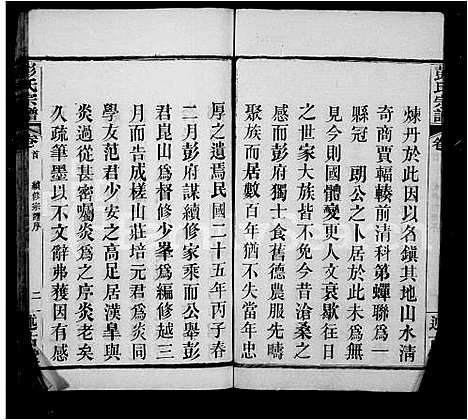 煉丹於此因以名鎮其地山水清
奇商賈輻輳前清科第蟬聯爲一
縣冠　朗公之卜居於此未爲無
見今則國體變更人文衰歇往日
之世家大族皆不免今昔滄桑之
感而彭府獨士食舊德農服先疇
聚族而居數百年猶不失當年忠
厚之遺焉民國二十五年丙子春
二月彭府謀續修家乘而公舉彭
君崑山爲督修少峯爲編修越三
月而成槎山莊培元君爲炎同
學友范君少安之高足居漢皐與
炎過從甚密囑炎爲之序炎老矣
久疏筆墨以不文辭弗獲因有感
彭氏宗譜
卷首
續修宗譜序
二
彭氏宗譜
卷